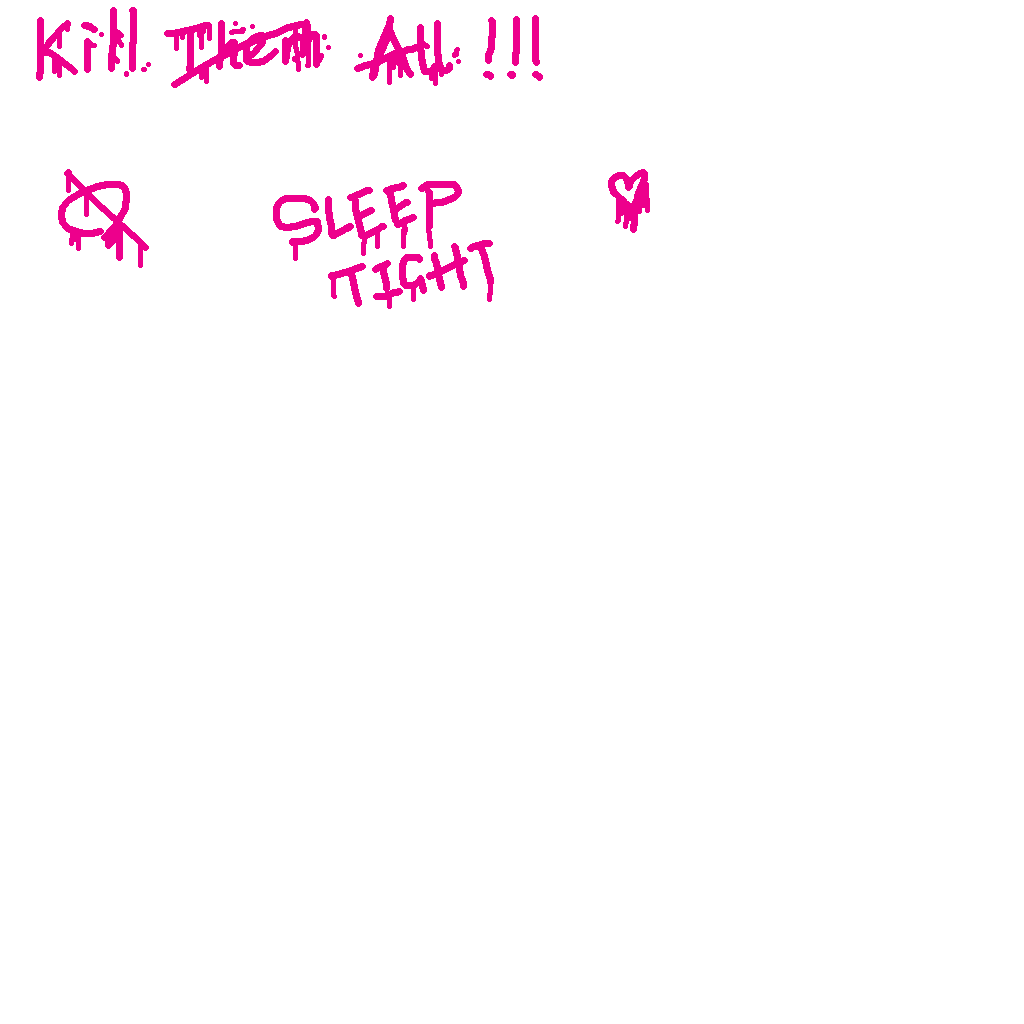 Kill Them All !!!
SLEEP
TIGHT